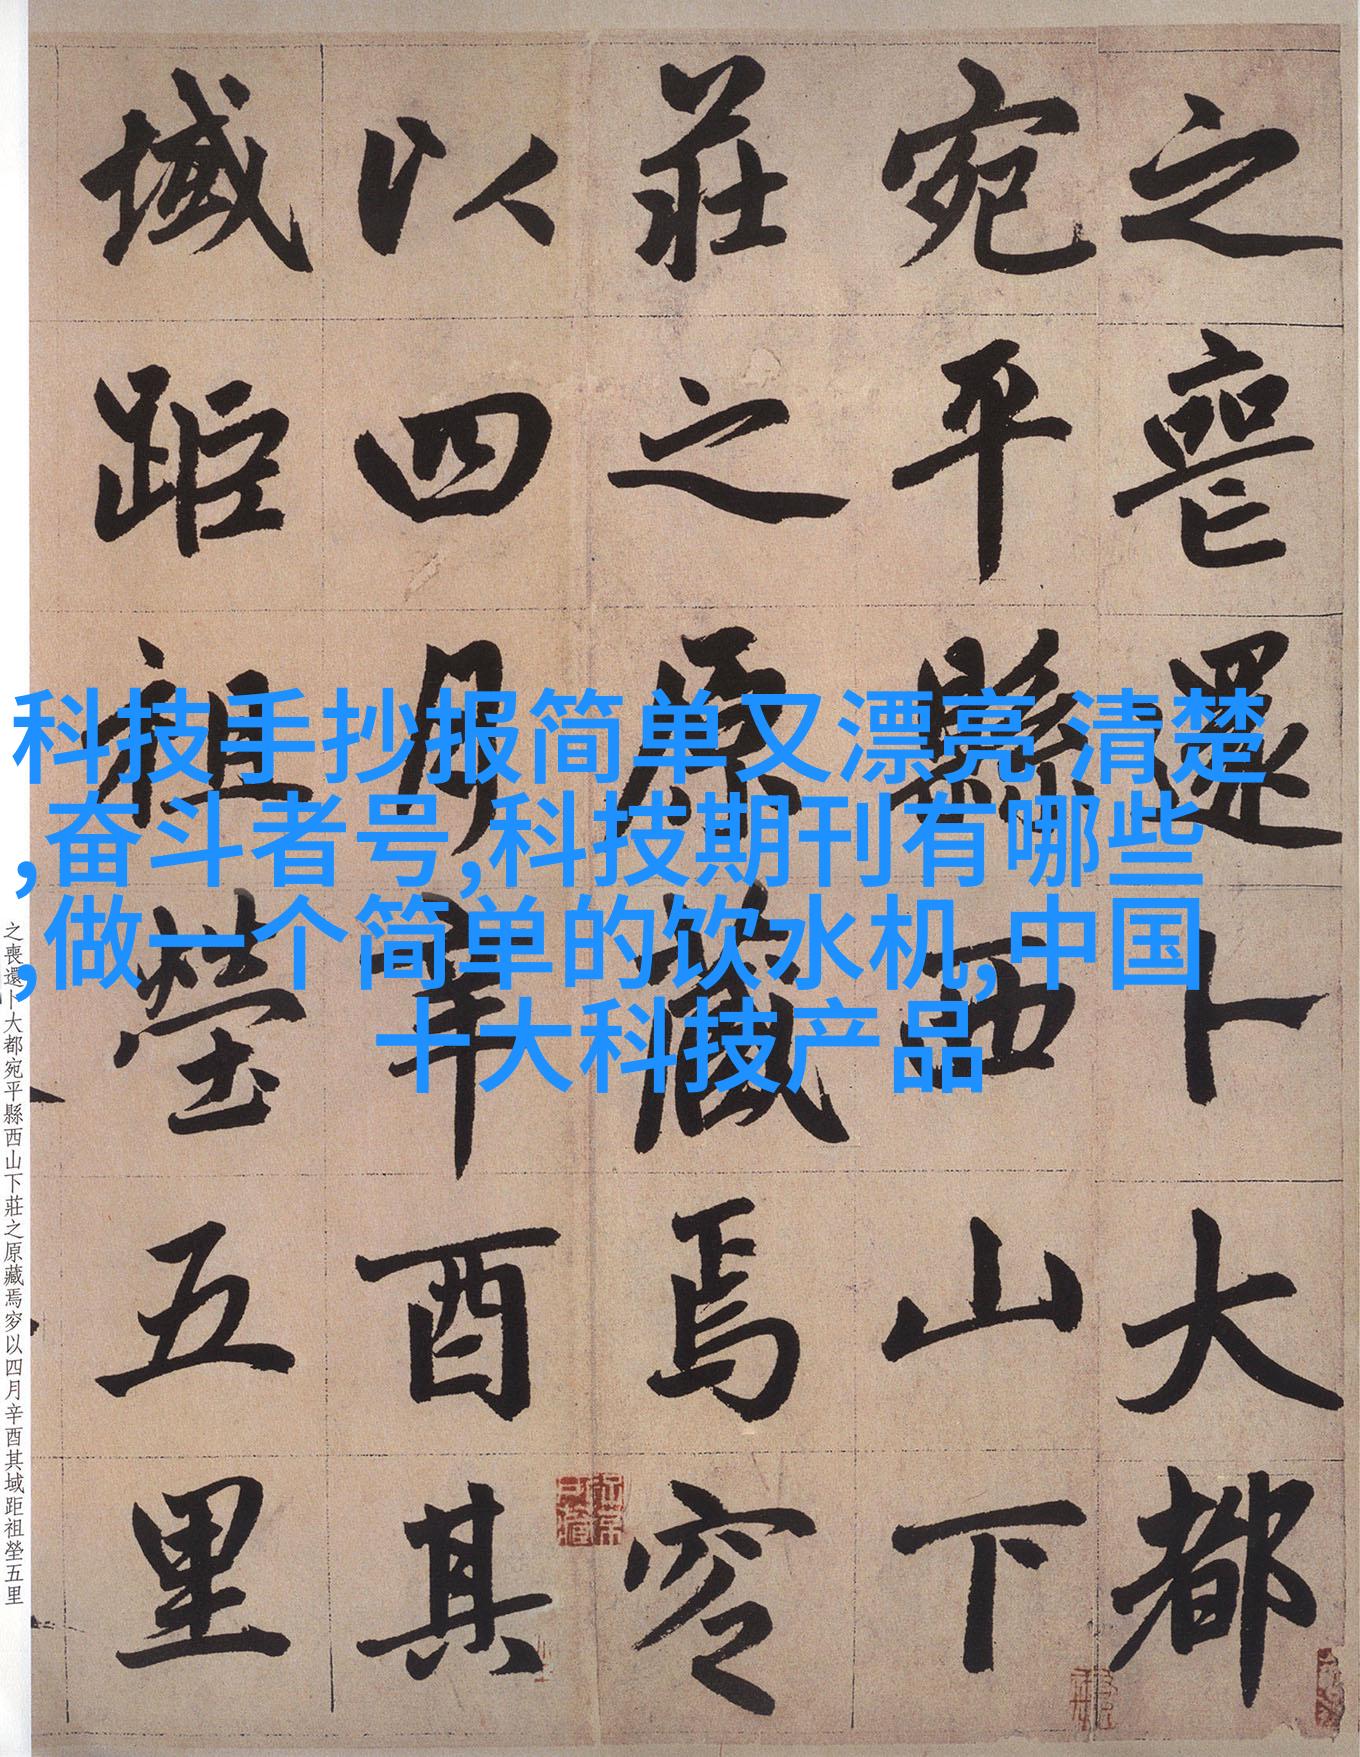 之喪還卜大都
宛平縣西山下
莊之原藏焉穸
以四月辛酉其
域距祖塋五里
科技手抄报简单又漂亮 清楚
,奋斗者号,科技期刊有哪些
,做一个简单的饮水机,中国
十大科技产品
之喪還卜大都宛平縣西山下莊之原藏焉穸以四月辛酉其域距祖塋五里